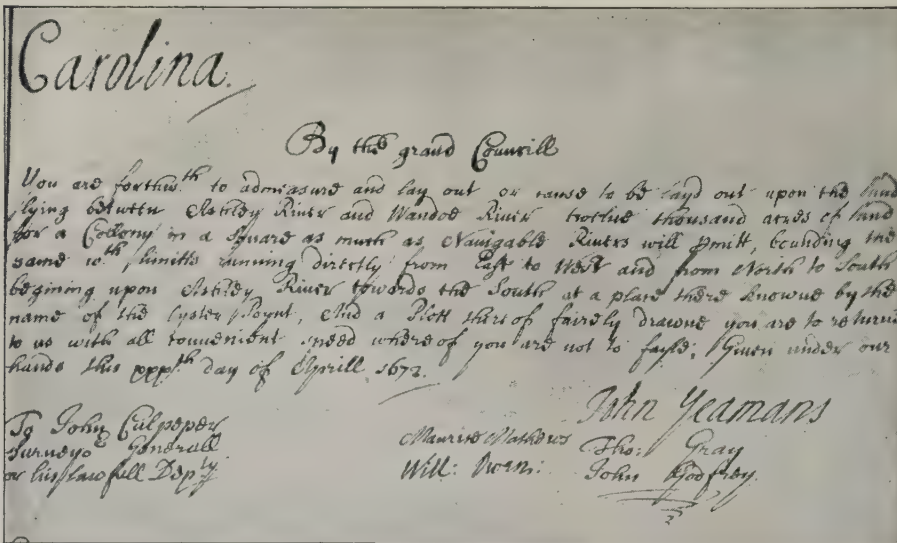 Carolina.
By the grand Councill
You are forthw.th to admeasure and lay out or cause to be layd out upon the land
lying betweene Ashley River and Wandoe River twelve thousand acres of land
for a Collony in a square as much as Navigable Rivers will pmitt, bounding the
same w.th limitts running directly from East to West and from North to South
begining upon Ashley River towards the South at a place there knowne by the
name of the Oyster Poynt, And a Plott thereof fairely drawne you are to returne
to us with all convenient speed whereof you are not to fayle, Given under our
hands this xxx.th day of Aprill 1672.
John Yeamans
To John Culpeper
Surveyo.r Generall
or his lawfull Dep.ty
Maurice Mathews
Will: Owen:
Tho: Gray
John Godfrey.